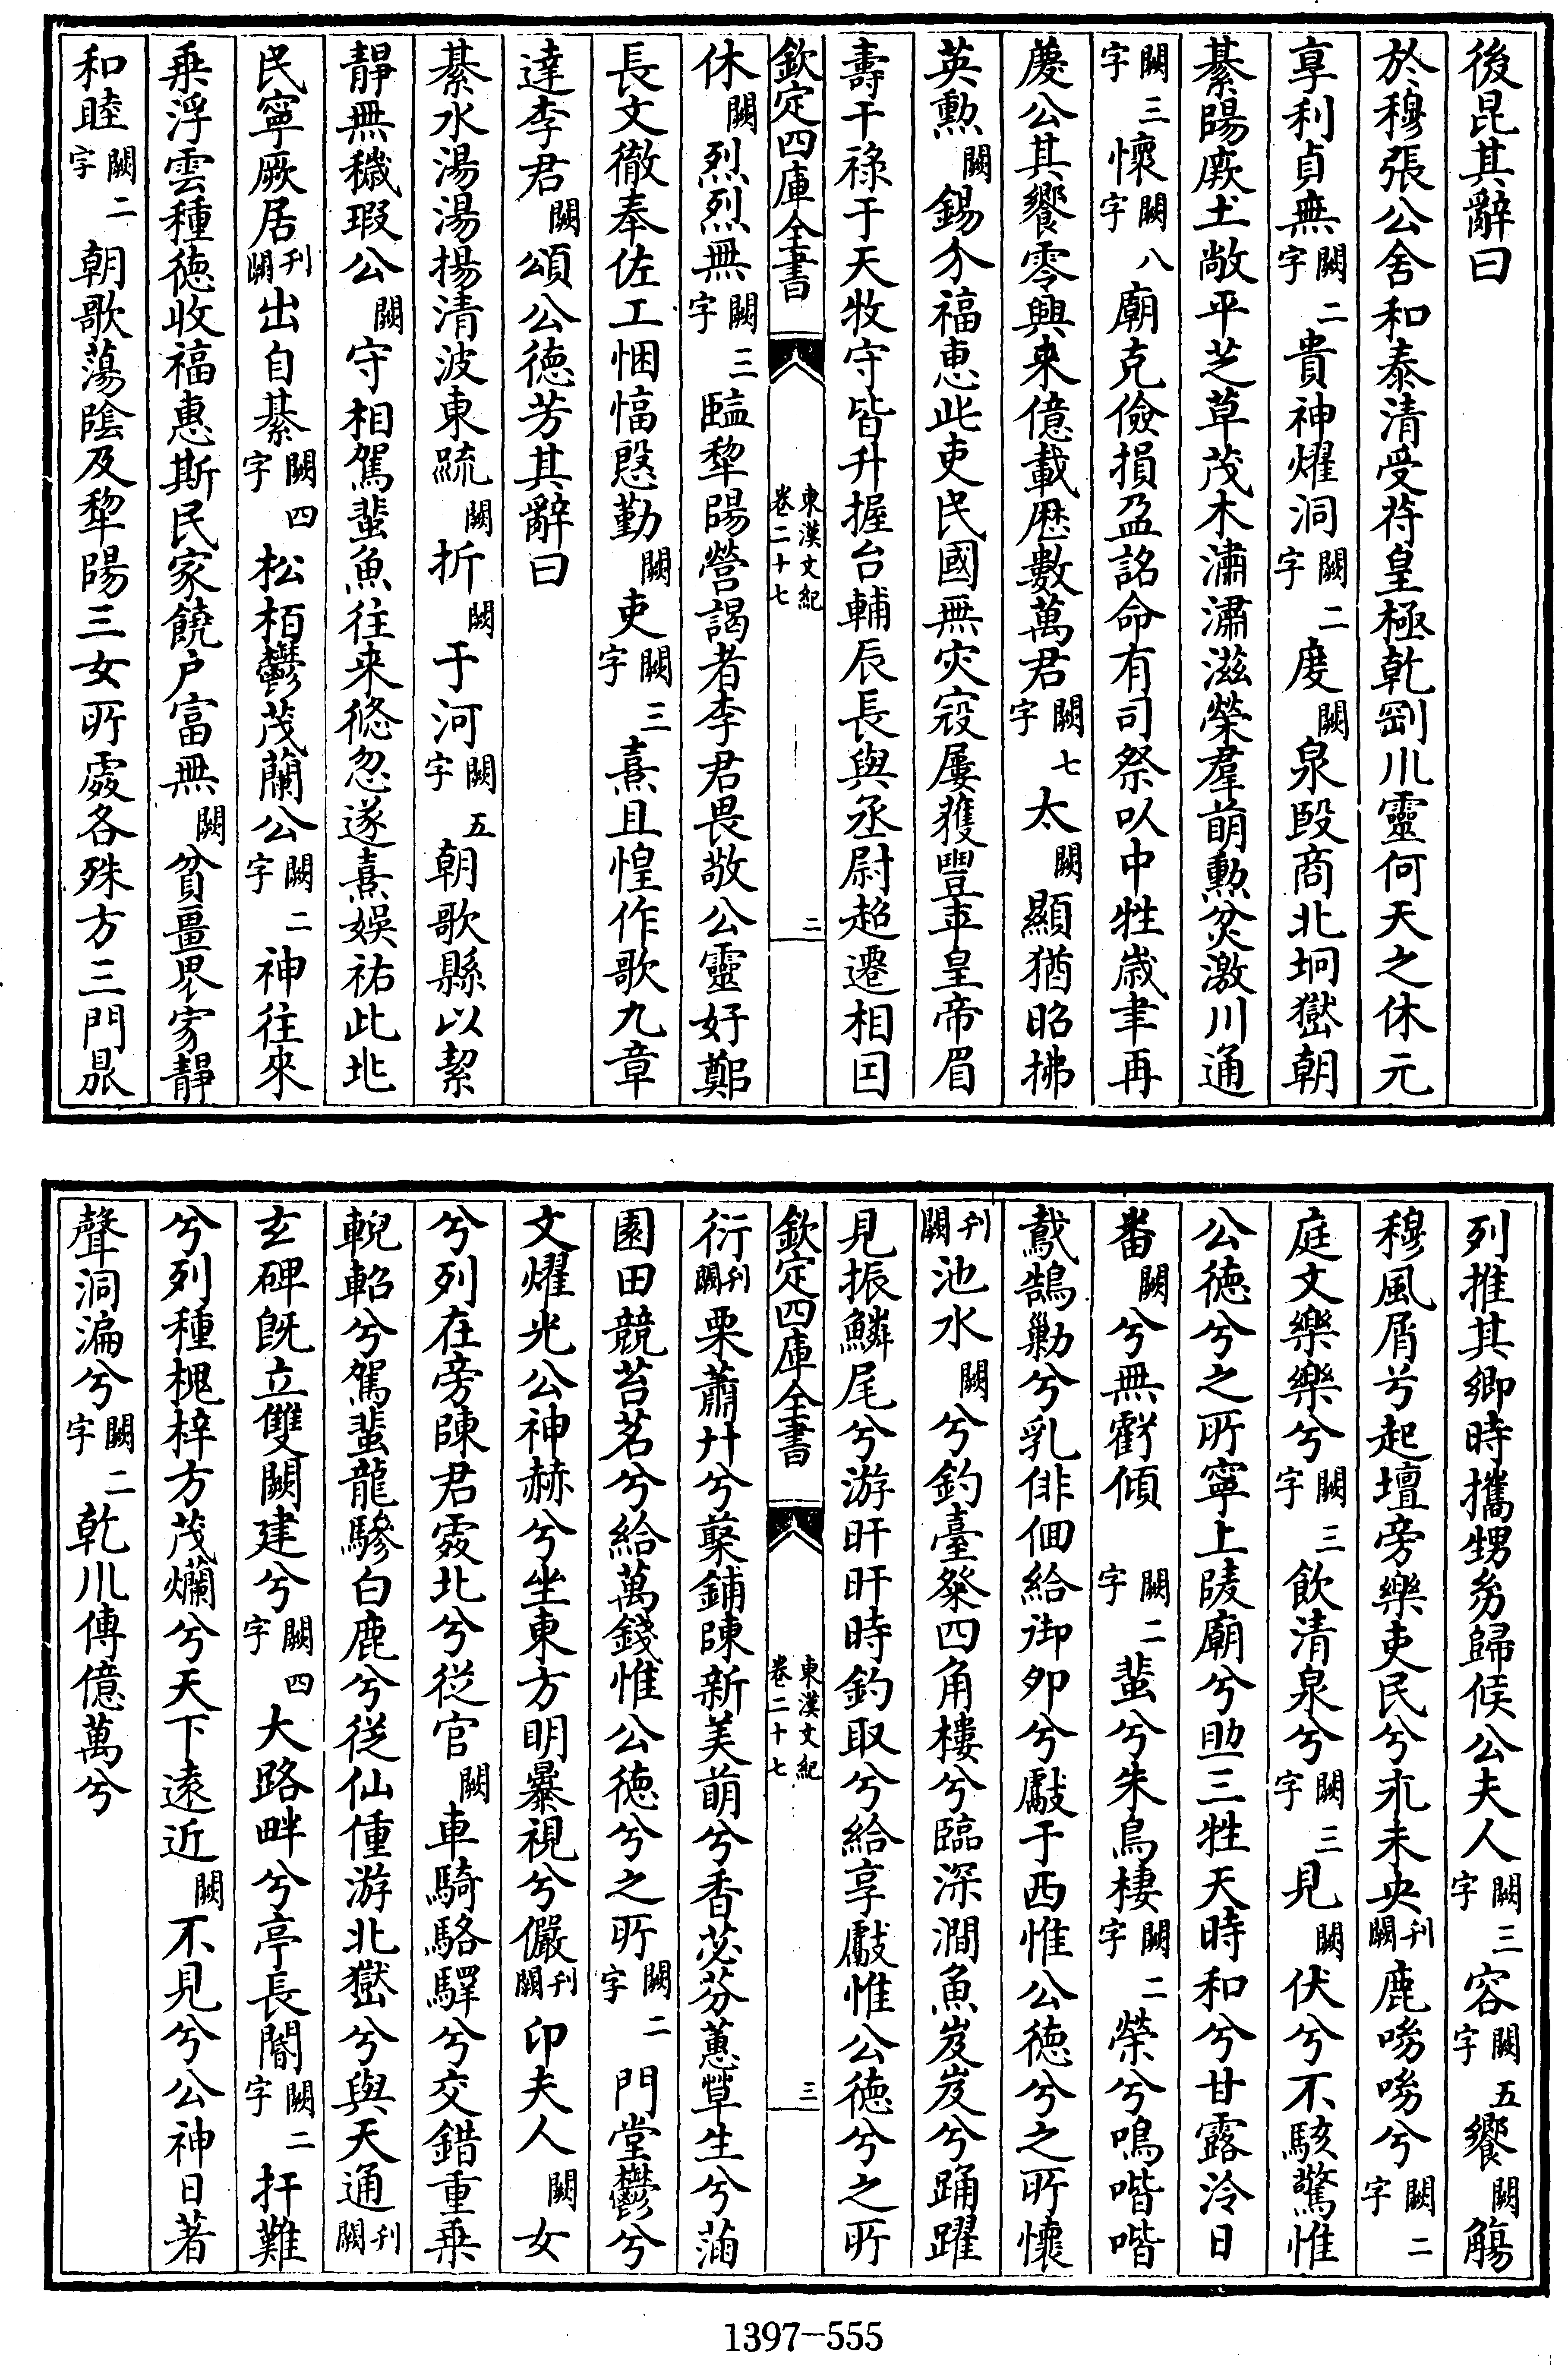 後昆其辭曰
於穆張公含和泰清受符皇極乾剛川靈何天之休元
享利貞無闕二字貴神燿洞闕二字度闕泉毆商北坰嶽朝
綦陽厥土敞平芝草茂木潚潚滋榮羣萌勲炗激川通
闕三字懷闕八字廟克儉損盈詺命有司祭以中牲歲聿再
慶公其饗零興来億載厯數萬君闕七字太闕顯猶昭拂
英勲闕錫介福惠此吏民國無灾寇屢獲豐年皇帝眉
壽干祿于天牧守皆升握台輔辰長與丞尉超遷相国
欽定四庫全書 東漢文紀 卷二十七 二
休闕烈烈無闕三字臨犂陽營謁者李君畏敬公靈好鄭
長文徹奉佐工悃愊慇勤闕吏闕三字熹且惶作歌九章
達李君闕頌公徳芳其辭曰
綦水湯湯揚清波東䟽闕折闕于河闕五字朝歌縣以絜
靜無穢瑕公闕守相駕蜚魚往来倐忽遂熹娱祐此兆
民寧厥居刋闕出自綦闕四字松栢鬱茂蘭公闕二字神往來
乗浮雲種徳收福惠斯民家饒户富無闕貧畺界家靜
和睦闕二字朝歌蕩陰及犂陽三女所處各殊方三門鼎
列推其鄉時攜甥㓜歸候公夫人闕三字容闕五字饗闕觴
穆風屑兮起壇旁樂吏民兮永未央刋闕鹿呦呦兮闕二字
庭文樂樂兮闕三字飲清泉兮闕三字見闕伏兮不駭驚惟
公徳兮之所寧上陵廟兮助三牲天時和兮甘露泠日
番闕兮無虧傾闕二字蜚兮朱鳥棲闕二字榮兮鳴喈喈
鷻鵠勦兮乳俳佪給御夘兮獻于西惟公徳兮之所懷
刋闕池水闕兮釣臺粲四角樓兮臨深澗魚岌岌兮踊躍
見振鱗尾兮游旰旰時釣取兮給享獻惟公徳兮之所
欽定四庫全書 東漢文紀 卷二十七 三
衍刋闕栗蕭廾兮蘂鋪陳新美萌兮香苾芬蕙草生兮滿
園田競苔茗兮給萬錢惟公徳兮之所闕二字門堂鬱兮
文燿光公神赫兮坐東方明暴視兮儼刋闕印夫人闕女
兮列在旁陳君處北兮從官闕車騎駱驛兮交錯重乗
輗軺兮駕蜚龍驂白鹿兮從仙僮游北嶽兮與天通刋闕
玄碑旣立雙闕建兮闕四字大路畔兮亭長閽闕二字扞難
兮列種槐梓方茂爛兮天下逺近闕不見兮公神日著
聲洞漏兮闕二字乾川傳億萬兮
1397-555